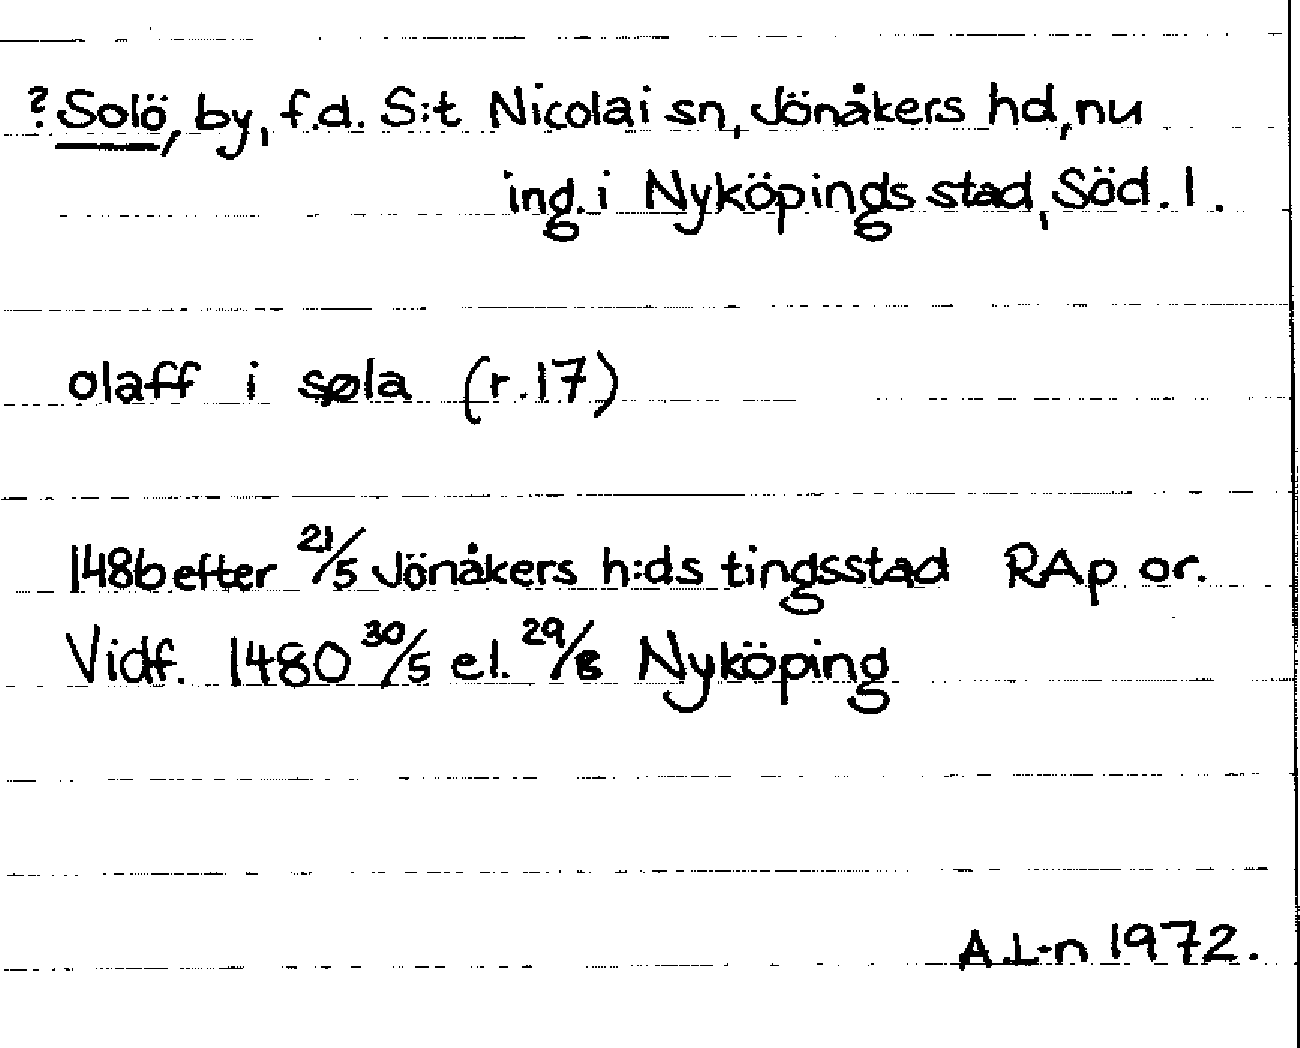 ? Solö, by, f.d. S:t Nicolai sn, Jönåkers hd, nu
ing. i Nyköpings stad, Söd. l.
olaff i søla (r. 17)
1486 efter 21/5 Jönåkers h:ds tingsstad RAp or.
Vidf. 1480 30/5 el. 29/8 Nyköping
A.L-n 1972.